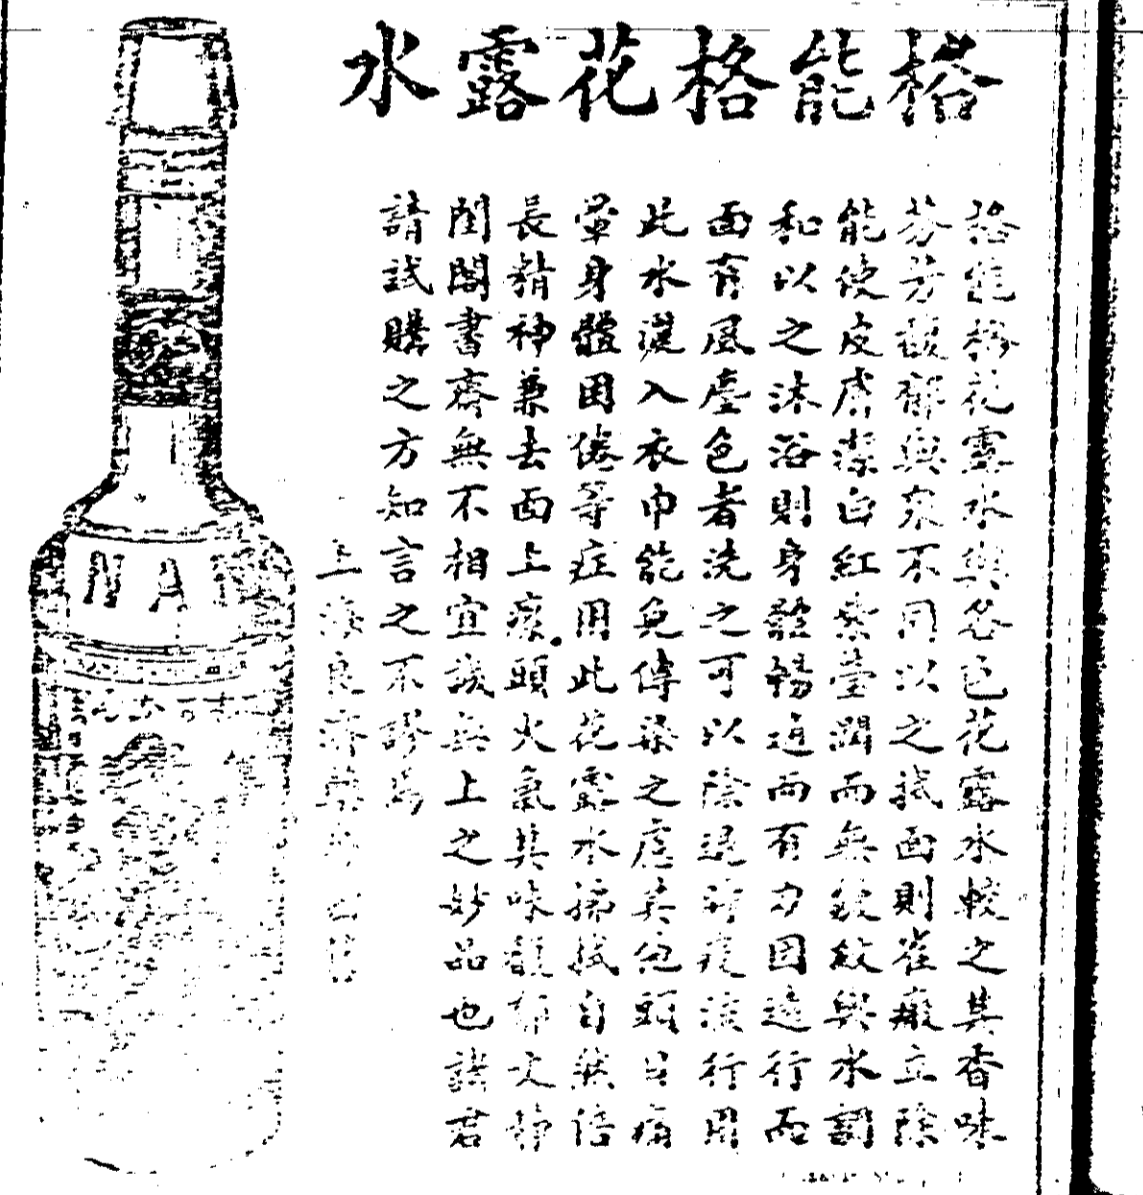 水露花格能搭
搭能格花露水與各色花露水較之其香味
芬芳馥郁與眾不同以之拭面則雀癍立除
能使皮膚潔白紅紫瑩潤而無皺紋與水調
和以之沐浴則身體暢適而有力因遠行而
面有風塵色者洗之可以除退時疫流行用
此水灑入衣巾能免傳染之虞兼免頭目痛
暈身體困倦等症用此花露水搽拭自然倍
長精神兼去面上瘰頭火氣其味馥郁文靜
閨閣書齋無不相宜誠無上之妙品也諸君
請試購之方知言之不謬焉
上海良濟藥房